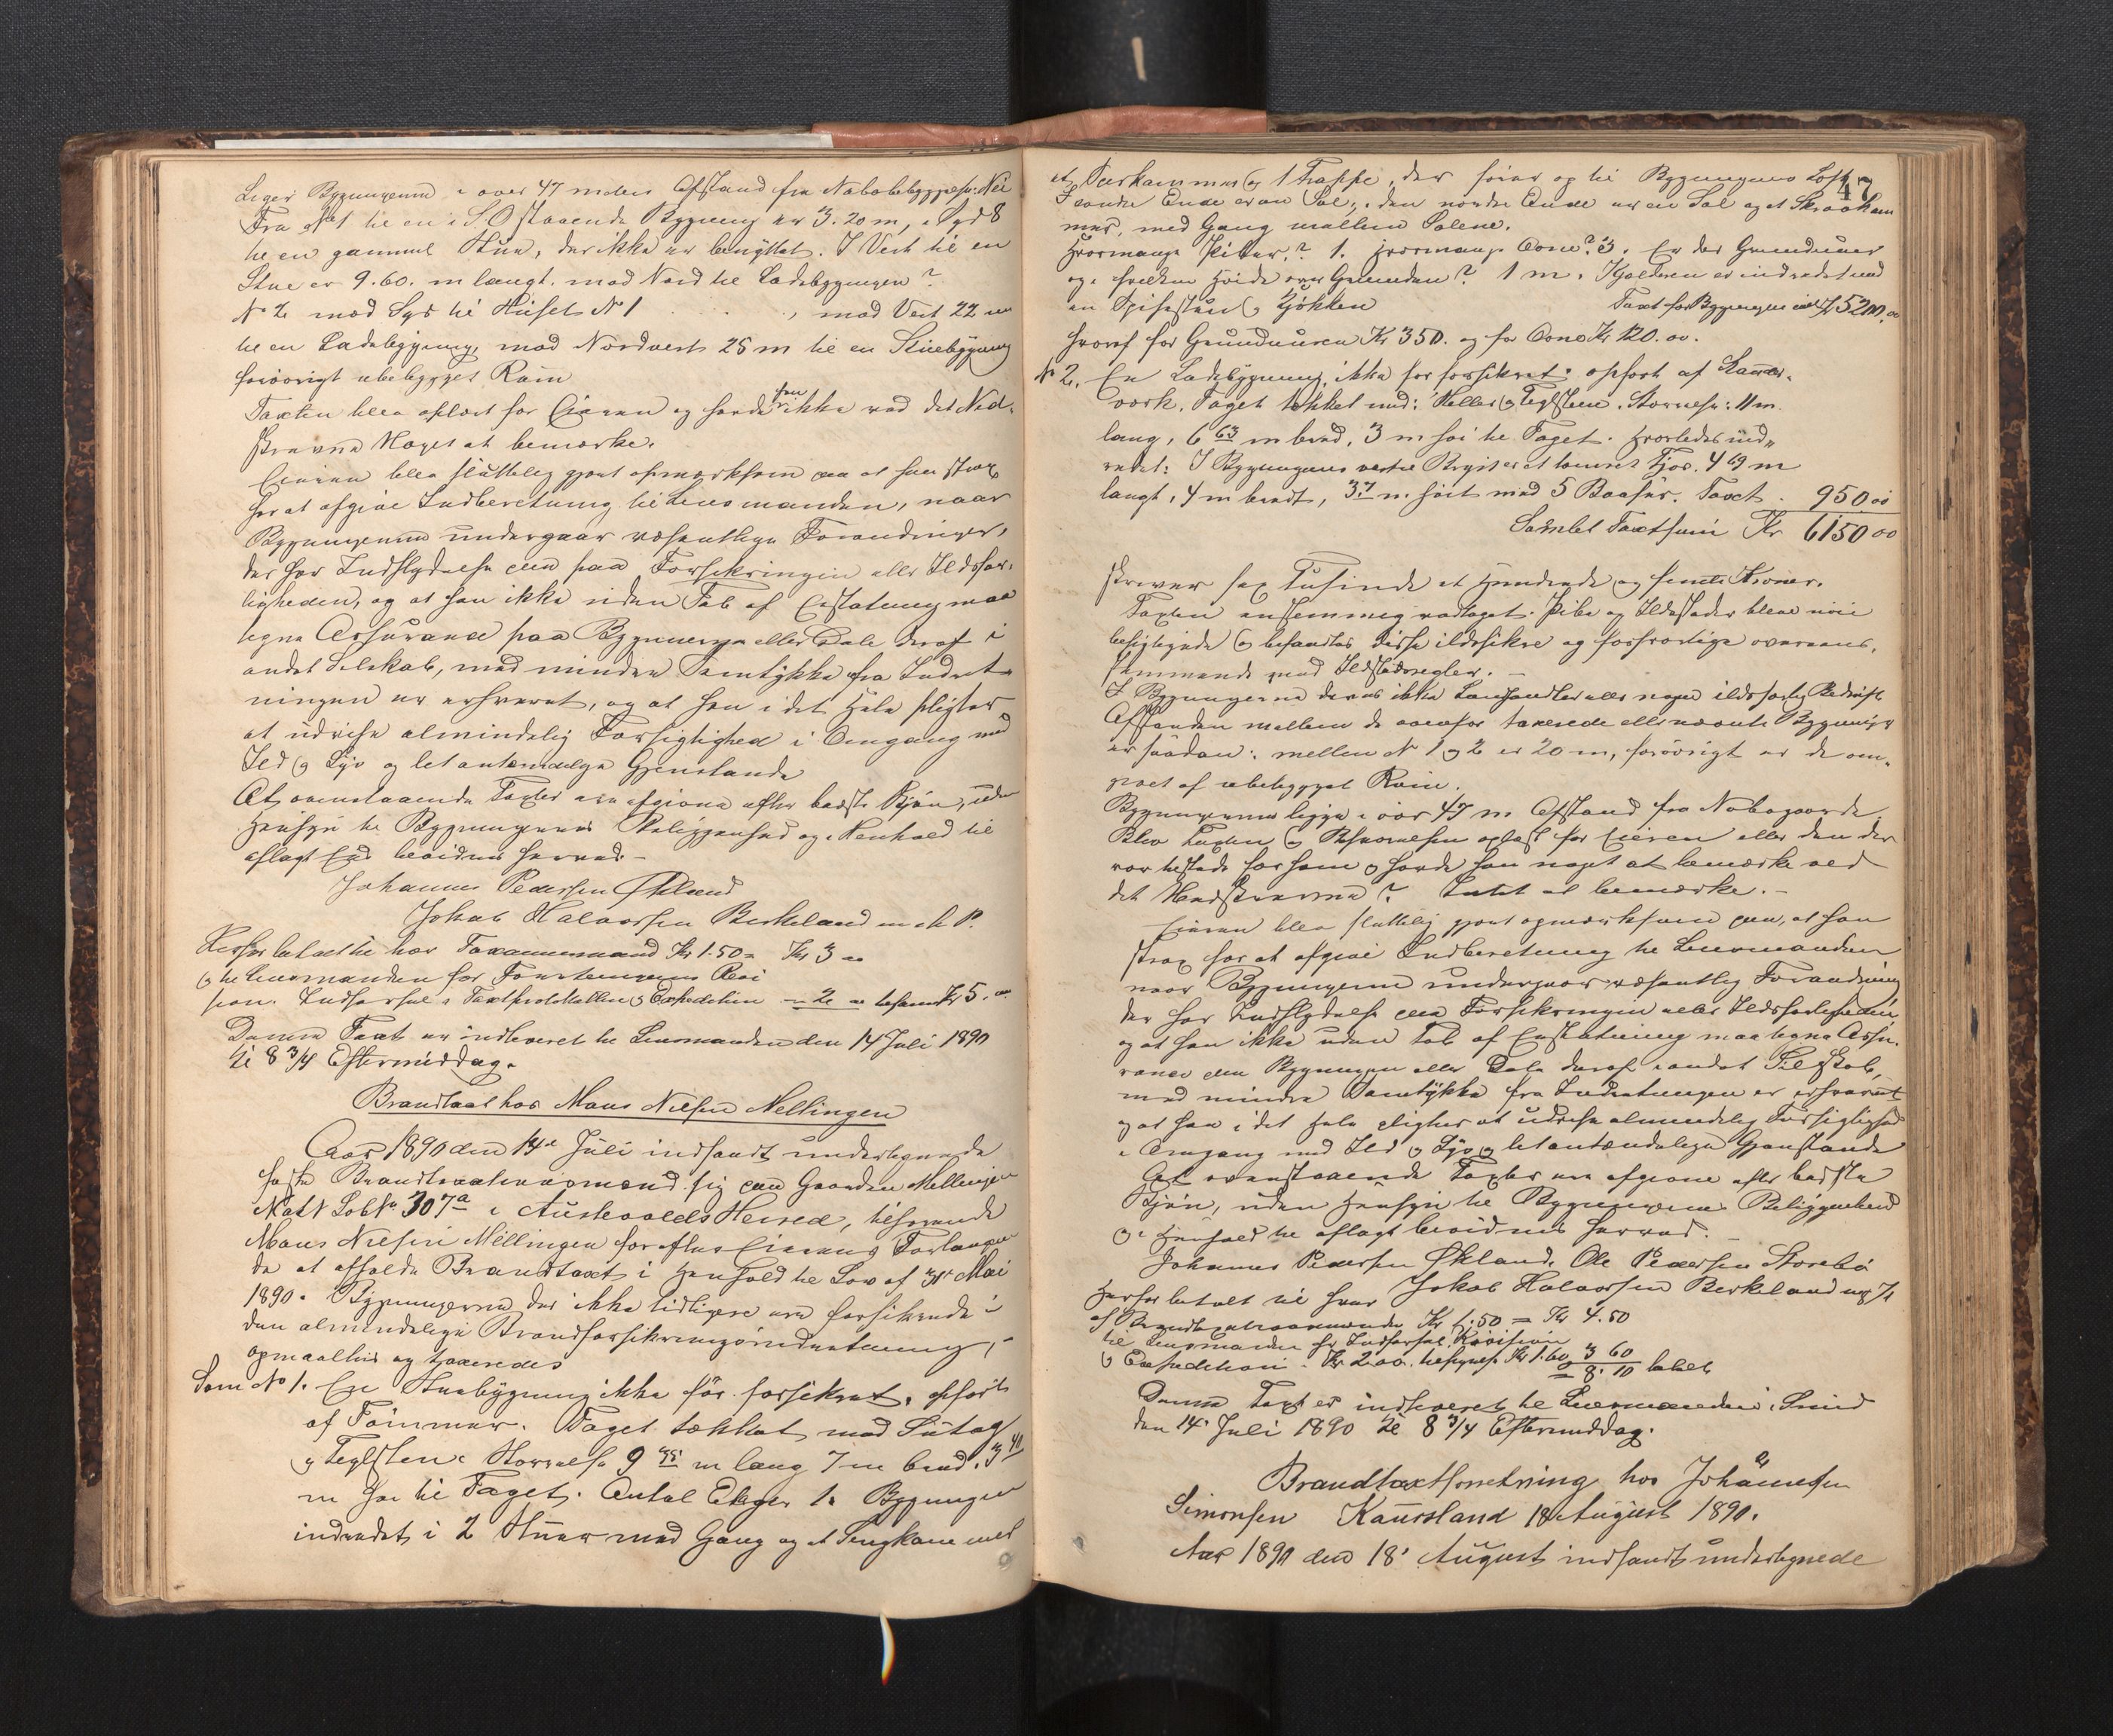 Ligger Bygningerne i over 47 meters Afstand fra Nabobebyggelse: Nei
Fra No 1 til en i S.O staaende Bygning er 3.20 m, i Syd 8
til en gammel Stue, der ikke er benyttet. I Vest til en
Stue er 9.60. m langt. mod Nord til Ladebygningen?
No 2 mod Syd til Huset No 1 , mod Vest 22 m
til en Ladebygning, mod Nordvest 25 m til en Stuebygning
forøvrigt ubebygget Rum
Taxten blev oplæst for Eieren og havde han ikke ved det Ned-
skrevne Noget at bemærke.
Eieren blev sluttelig gjort opmærksom paa at han strax
har at afgive Indberetning til Lensmanden, naar
Bygningerne undergaar væsentlige Forandringer,
der har Indflydelse paa Forsikringen eller Ildsfar-
ligheden, og at han ikke uden Tab af Erstatning maa
tegne Assurance paa Bygningen eller Dele deraf i
andet Selskab, med mindre Samtykke fra Indret-
ningen er erhvervet, og at han i det Hele pligter
at udvise almindelig Forsigtighed i Omgang med
Ild og Lys og letantændelige Gjenstande
At ovenstaaende Taxter ere afgivne efter bedste Skjøn, uden
Hensyn til Bygningernes Beliggenhed og i Henhold til
aflagt Ed bevidnes herved.-
Johannes Pedersen Økland
Jakob Halvorsen Birkeland m. f. P.
Herfor betalt til hver Taxationsmand Kr 1.50 = Kr 3 00
og til Lensmanden for Forretningens Revi
sion. Indførsel i Taxtprotokollen og Expedition - 2 00 tilsam Kr 5.00
Denne Taxt er indleveret til Lensmanden den 14 Juli 1890
Kl 8 3/4 Eftermiddag.
Brandtaxt hos Mons Nilsen Mellingen
Aar 1890 den 14de Juli indfandt undertegnede
faste Brandtaxationsmænd sig paa Gaarden Mellingen
Mat No Lob No 307a i Austevolds Herred, tilhørende
Mons Nielsen Mellingen for efter Eierens Forlangen
de at afholde Brandtaxt i Henhold til Lov af 31te Mai
1890. Bygningerne, der ikke tidligere ere forsikrede i
den almindelige Brandforsikringsindretning,
opmaaltes og taxeredes
Som No 1. En Stuebygning ikke før forsikret, opført
af Tømmer. Taget tækket med Sutag
og Teglsten. Størrelse 9 35 m lang 7 m bred. 3 40
m høi til Taget. Antal Etager 1. Bygningen
indredet i 2 Stuer med Gang og et Sengkammer
47
et Sarkammer og 1 Trappe, der fører op til Bygningens Loft
I søndre Ende er en Sal, i den nordre Ende er en Sal og et Skraakam
mer, med Gang mellem Salene.
Hvormange Piber? 1. Hvormange Ovne? 3. Er der Grundmur
og i hvilken Høide over Grunden? 1 m. Kjelderen er indredet med
en Spisestue og Kjøkken Taxt for Bygningen Kr 5200.00
hvoraf for Grundmuren Kr 350. og for Ovne Kr 120.00.
No 2. En Ladebygning, ikke før forsikret. opført af Stauer-
værk. Taget tækket med: Heller og Teglsten. Størrelse: 11 m.
lang, 6 63 m bred, 3 m høi til Taget. Hvorledes ind-
redet: I Bygningens vestre Ende er et tømret Fjøs. 4 69 m
langt, 4 m bredt, 3.7 m. høit med 5 Baaser. Taxt . 950 00
Samlet Taxtsum Kr 6150 00
skriver sex Tusinde et Hundrede og femti Kroner.
Taxten enstemmig vedtaget. Pibe og Ildsteder bleve nøie
besigtigede og befandtes disse ildsikre og forsvarlige overens-
stemmende med Ildstedsregler.
I Bygningerne drives ikke Landhandleri eller nogen ildsfarlig Bedrift
Afstanden mellem de ovenfor taxerede eller nævnte Bygninger
er saadan: mellem No 1 og 2 er 20 m, forøvrigt er de om-
givet af ubebygget Rum.
Bygningerne ligge i over 47 m Afstand fra Nabogaarde
Blev Taxten og Beskrivelsen oplæst for Eieren eller den der
var tilstede for ham og havde han noget at bemærke ved
det Nedskrevne? Intet at bemærke.-
Eieren blev sluttelig gjort opmærksom paa, at han
strax har at afgive Indberetning til Lensmanden
naar Bygningerne undergaar væsentlig Forandring
der har Indflydelse paa Forsikringen eller Ildsfarligheden
og at han ikke uden Tab af Erstatning maa tegne Assu-
rance paa Bygningen eller Dele deraf i andet Selskab,
med mindre Samtykke fra Indretningen er erhvervet
og at han i det Hele pligter at udvise almindelig Forsigtighed
i Omgang med Ild og Lys og letantændelige Gjenstande
At ovenstaaende Taxter ere afgivne efter bedste
Skjøn, uden Hensyn til Bygningernes Beliggenhed
og i Henhold til aflagt bevidnes herved.
Johannes Pedersen Økland. Ole Pedersen Storebø
Jakob Halvorsen Birkeland m. f. P.
Herfor betalt til hver
af Brandtaxationsmænde Kr 1.50 = Kr 4.50
til Lensmanden for Indførsel Revision
og Expedition. Kr 2.00. Kr 1.60 3 60
= 8.10 betalt
Denne Taxt er indleveret til Lensmanden i Sund
den 14. Juli 1890 Kl 8 3/4 Eftermiddag.
Brandtaxtforretning hos Johannes
Simonsen Kaursland 18 August 1890.
Aar 1890 den 18. August indfandt undertegnede